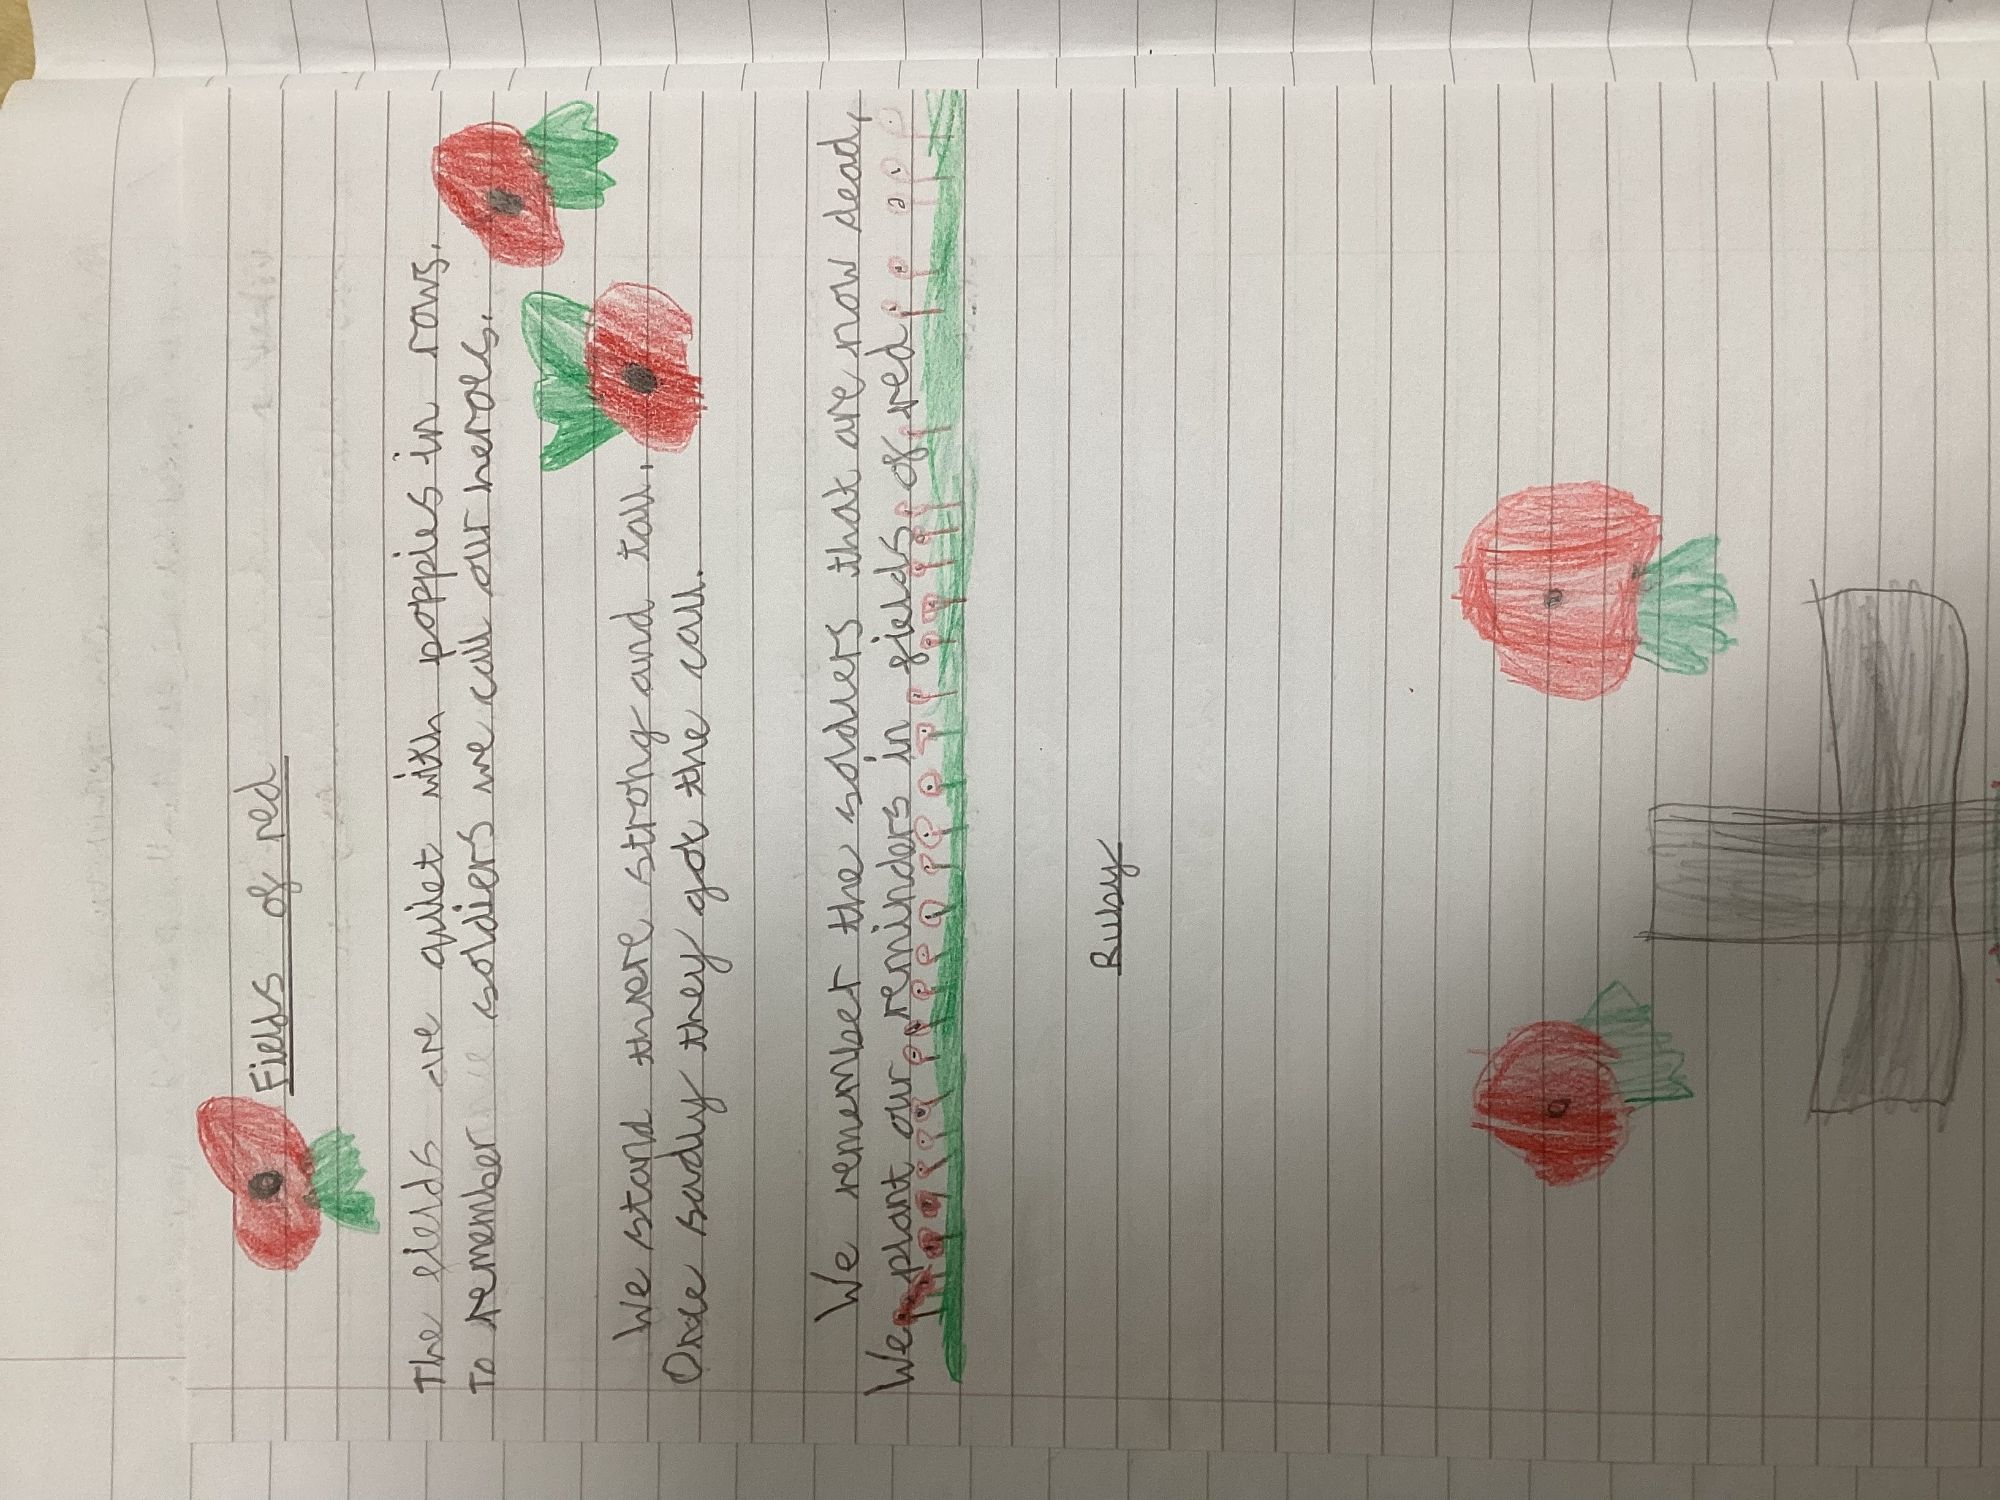 Fields of red
The fields are quiet with poppies in rows,
To remember soldiers we call our heroes.
We stand there strong and tall,
Once sadly they got the call.
We remember the soldiers that are now dead,
We plant our reminders in fields of red
Ruby